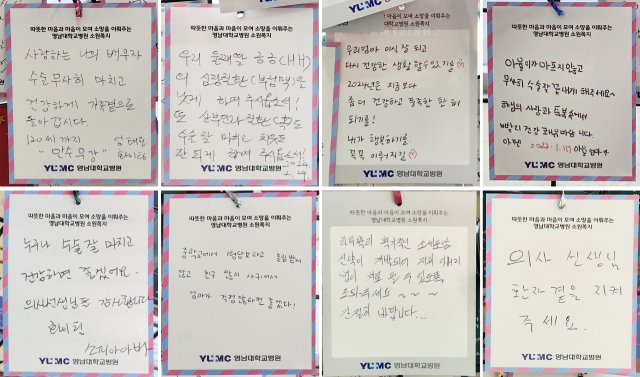 따뜻한 마음과 마음이 모여 소망을 이뤄주는
영남대학교병원 소원쪽지
사랑하는 나의 배우자
수술 무사히 마치고
건강하게 가족곁으로
돌아 갑시다.
120세 까지
"만수무강"
YUMC 영남대학교병원
따뜻한 마음과 마음이 모여 소망을 이뤄주는
영남대학교병원 소원쪽지
우리 둘째딸
의 심장질환
낫게 하여 주시옵소서!
또
수술 잘 마치고
잘 되게 하여 주시옵소서!
2024
2. 29.
YUMC 영남대학교병원
YUMC
마음과 마음이 모여 소망을 이뤄주는
영남대학교병원 소원쪽지
우리엄마 이식 잘 되고
다시 건강한 생활 할 수 있기를
2024년은 지금보다
좀 더 건강하고 행복한 한 해
되기를!
내가 행복하기를
꼭꼭 이루어지길
YUMC 영남대학교병원
따뜻한 마음과 마음이 모여 소망을 이뤄주는
영남대학교병원 소원쪽지
아들이가 아프지말고
무사히 수술 잘 끝내게 해주세요~
하나님의 사랑과 축복속에서
빨리 건강 회복 바랍니다.
아멘
YUMC 영남대학교병원
따뜻한 마음과 마음이 모여 소망을 이뤄주는
영남대학교병원 소원쪽지
누나 수술 잘 마치고
건강하면 좋겠어요.
의사선생님들 감사합니다
화이팅
소피아아빠
YUMC 영남대학교병원
따뜻한 마음과 마음이 모여 소망을 이뤄주는
영남대학교병원 소원쪽지
중학교에서 적응잘하고
않고 친구 많이 사귀어서
엄마가 걱정안하면 좋겠다!
YUMC 영남대학교병원
따뜻한 마음과 마음이 모여 소망을 이뤄주는
영남대학교병원 소원쪽지
신약이 개발되어 저희 아버지
도와주세요 ~ ~ ~
간절히 바랍니다....
YUMC 영남대학교병원
따뜻한 마음과 마음이 모여 소망을 이뤄주는
영남대학교병원 소원쪽지
의사 선생님
환자 곁을 지켜
주세요.
YUMC 영남대학교병원